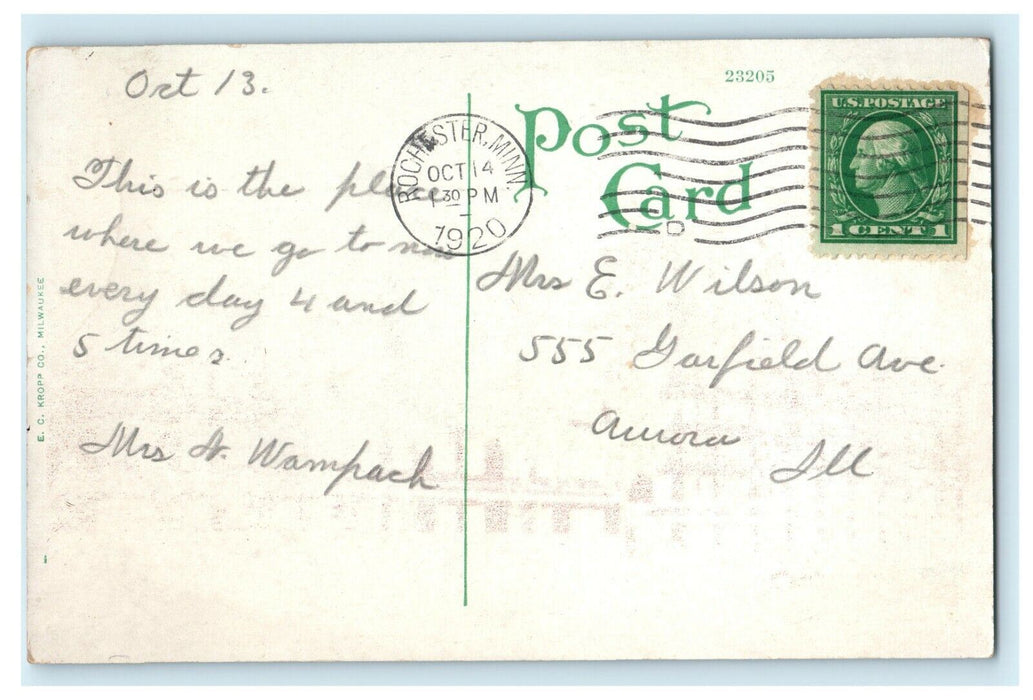 Oct 13.
This is the place
where we go to now
every day 4 and
5 times.
Mrs H. Wampach
E. C. KROPP CO., MILWAUKEE
23205
Post
Card
ROCHESTER, MINN.
OCT 14
30 PM
1920
U.S. POSTAGE
1 CENT 1
Mrs E. Wilson
555 Garfield Ave.
Aurora
Ill